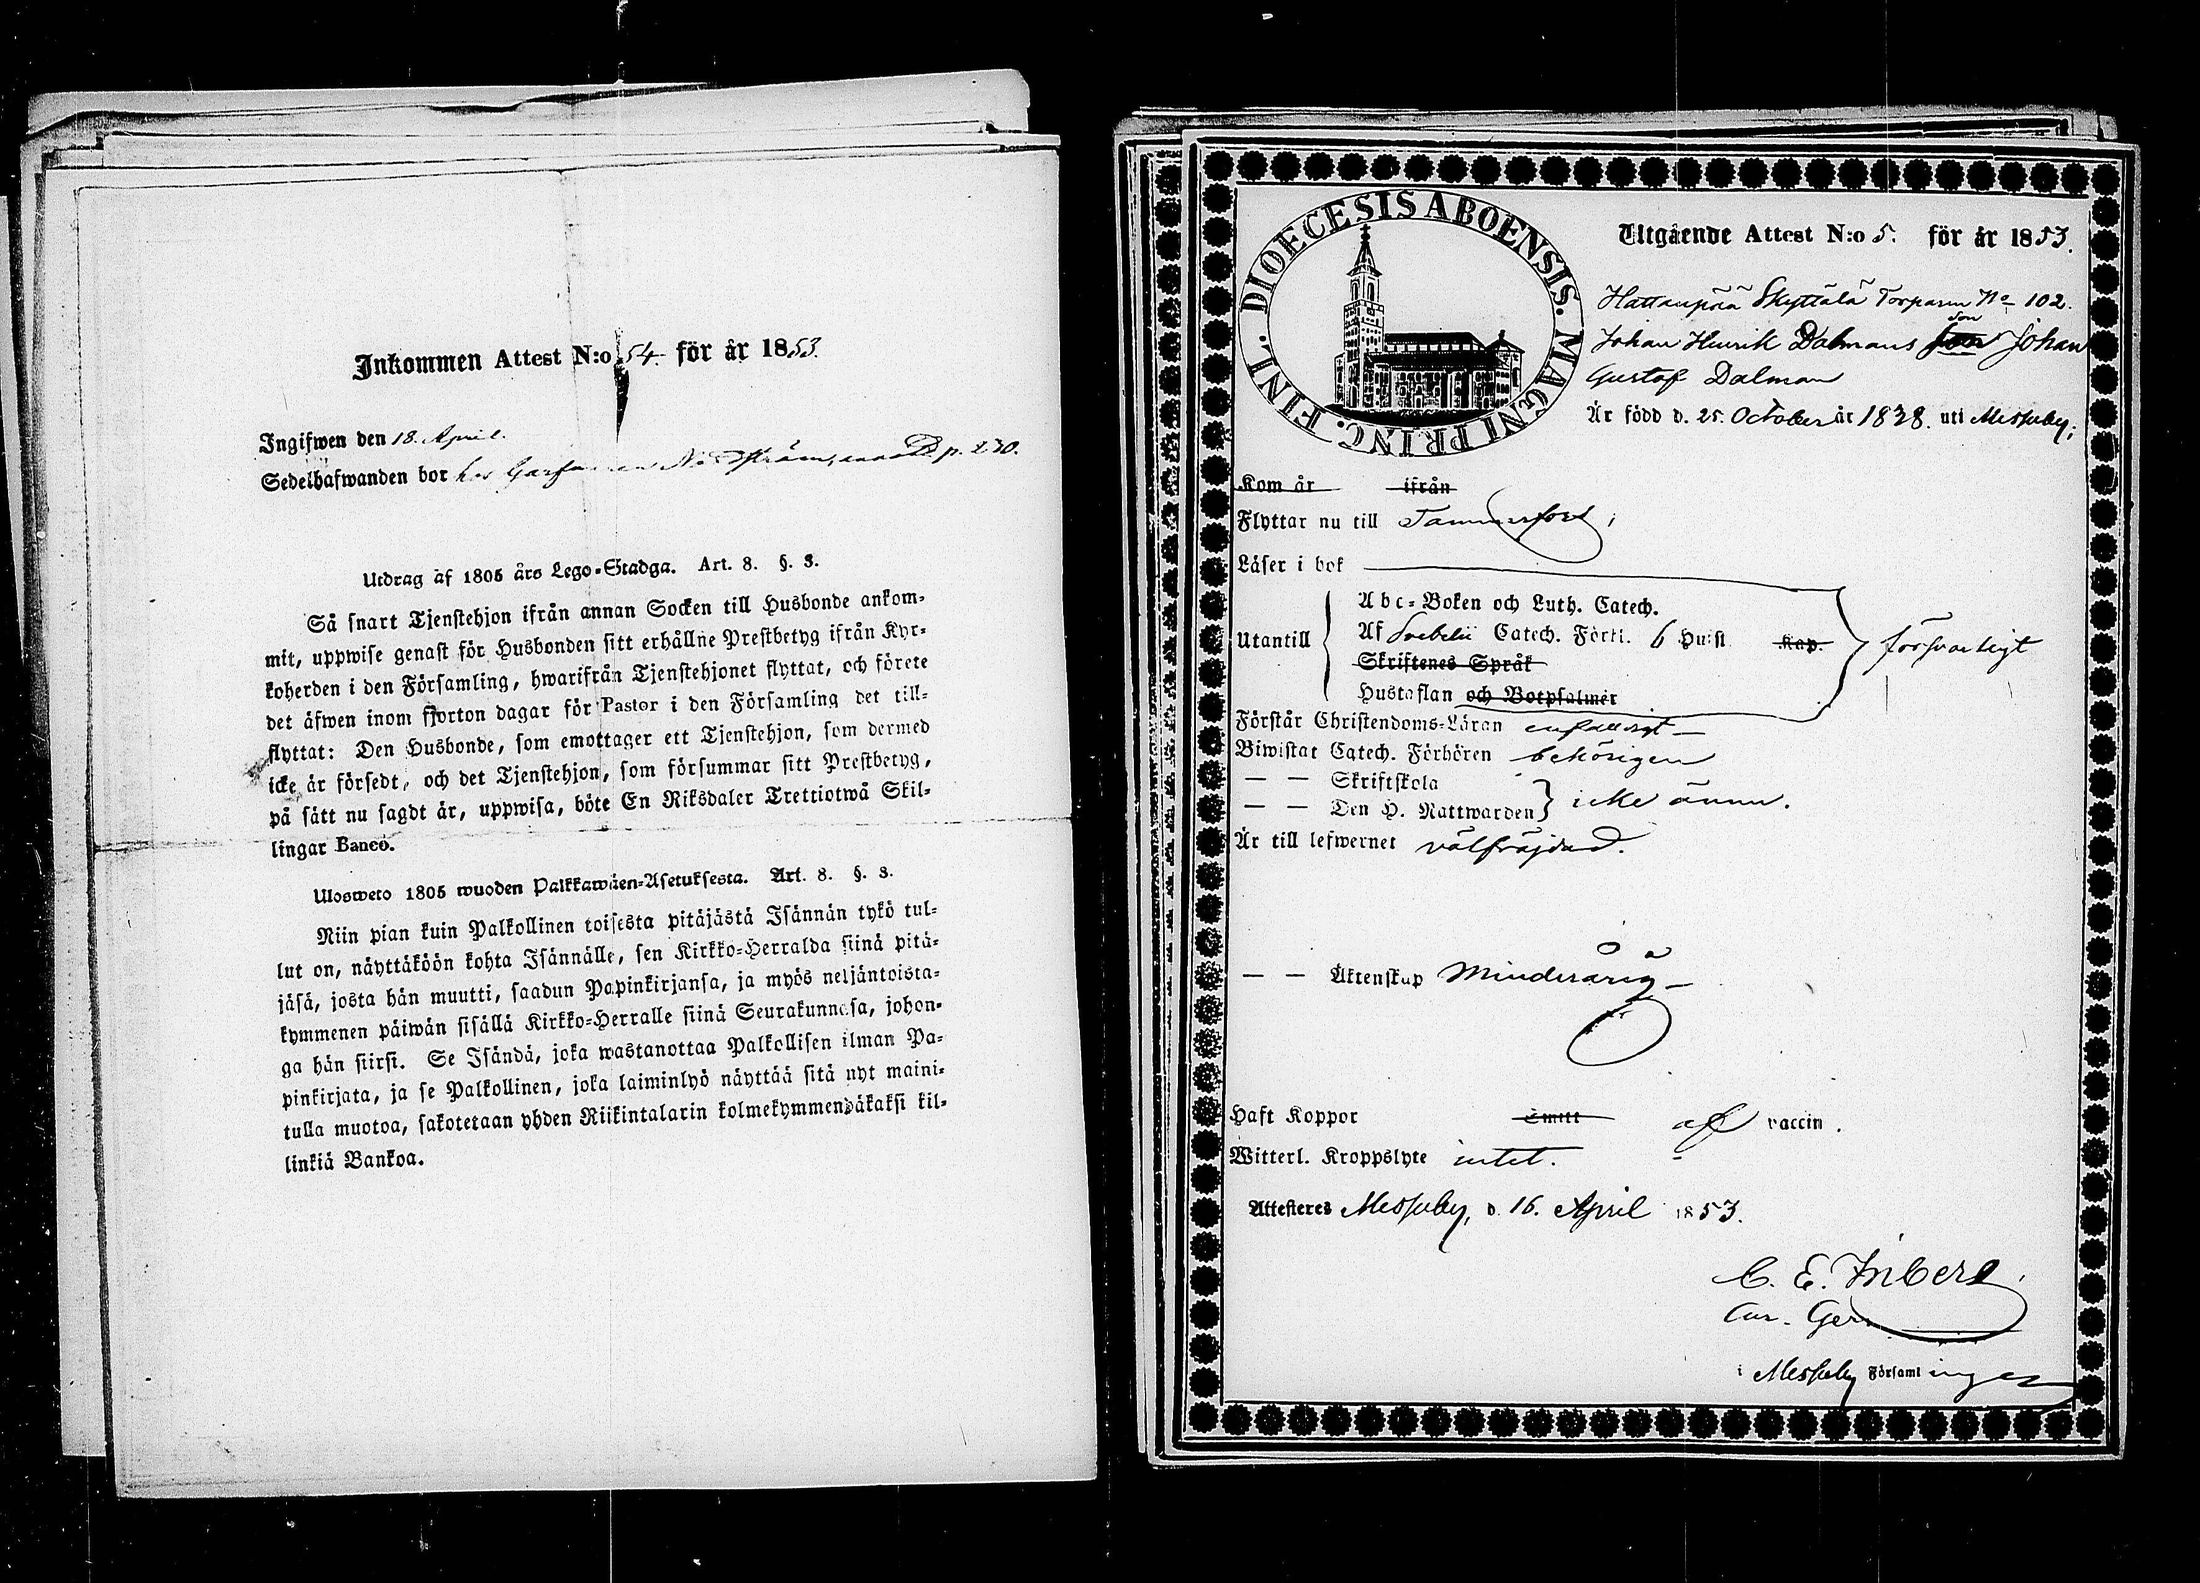 Inkommen Attest N:o 54. för år 1853.
Ingifwen den 18. April.
Sedelhafwanden bor hos Garfvaren Nordström, p. 230.
Utdrag af 1805 års Lego-Stadga. Art. 8. §. 3.
Så snart Tjenstehjon ifrån annan Socken till Husbonde ankom-
mit, uppwise genast för Husbonden sitt erhållne Prestbetyg ifrån Kyr-
koherden i den Församling, hwarifrån Tjenstehjonet flyttat, och förete
det äfwen inom fjorton dagar för Pastor i den Församling det till-
flyttat: Den Husbonde, som emottager ett Tjenstehjon, som dermed
icke är försedt, och det Tjenstehjon, som försummar sitt Prestbetyg,
på sätt nu sagdt är, uppwisa, böte En Riksdaler Trettiotwå Skil-
lingar Banco.
Ulosweto 1805 wuoden Palkkawäen-Asetuksesta. Art. 8. §. 3.
Niin pian kuin Palkollinen toisesta pitäjästä Isännän tykö tul-
lut on, näyttäköön kohta Isännälle, sen Kirkko-Herralda siinä pitä-
jäsä, josta hän muutti, saadun Papinkirjansa, ja myös neljäntoista-
kymmenen päiwän sisällä Kirkko-Herralle siinä Seurakunnasa, johon-
ga hän siirsi. Se Isändä, joka wastanottaa Palkollisen ilman Pa-
pinkirjata, ja se Palkollinen, joka laiminlyö näyttää sitä nyt maini-
tulla muotoa, sakotetaan yhden Riikintalarin kolmekymmendäkaksi kil-
linkiä Bankoa.
FINL. DIOECESIS ABOENSIS. MAGNI PRINC.
Utgående Attest N:o 5. för år 1853.
Hattanpää Skyttälä Torparen No 102.
Johan Henrik Dalmans son Johan
Gustaf Dalman
Är född d. 25. October år 1838. uti Messuby;
Kom år ifrån
Flyttar nu till Tammerfors;
Läser i bok
Utantill
Abc-Boken och Luth. Catech.
Af Svebelii Catech. Förkl. 6 Hufst Kap. försvarligt
Skriftenes Språk
Hustaflan och Botpsalmer
Förstår Christendoms-Läran enfalligt
Biwistat Catech. Förhören behörigen
— — Skriftskola
— — Den H. Nattwarden icke ännu.
Är till lefwernet välfräjdad.
— — Äktenskap Minderårig
Haft Koppor Smitt af vaccin.
Witterl. Kroppslyte intet.
Attesteras Messuby, d. 16. April 1853.
C. E.
Cur. Ger.
i Messuby Församlingen